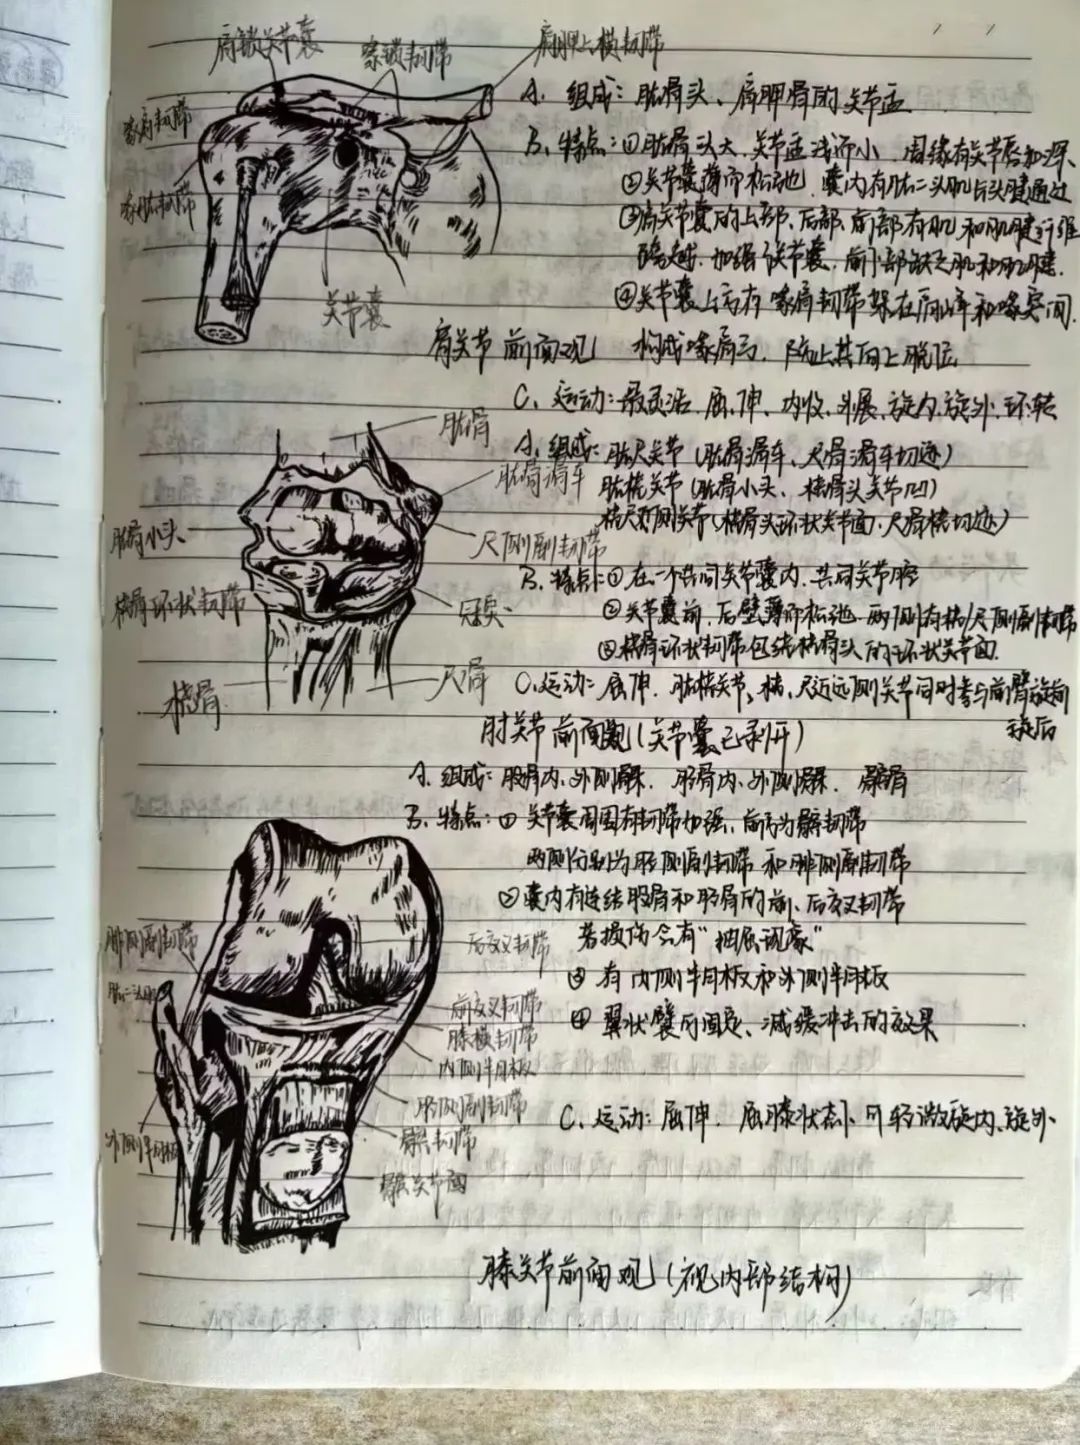 肩锁关节囊
喙锁韧带
肩胛上横韧带
喙肩韧带
喙肱韧带
关节囊
A、组成：肱骨头、肩胛骨的关节盂
B、特点：①肱骨头大、关节盂浅而小、周缘有关节唇加深、
②关节囊薄而松弛 囊内有肱二头肌长头腱通过
③肩关节囊的上部、后部、前部有肌和肌腱纤维
跨越、加强了关节囊、前下部缺乏肌和肌腱.
④关节囊上方有喙肩韧带架在肩峰和喙突间.
肩关节前面观 构成喙肩弓、防止其向上脱位
C、运动：最灵活 屈、伸、内收、外展、旋内、旋外、环转
肱骨
肱骨滑车
肱骨小头
尺侧副韧带
桡骨环状韧带
冠突
桡骨
尺骨
A、组成：肱尺关节（肱骨滑车、尺骨滑车切迹）
肱桡关节（肱骨小头、桡骨头关节凹）
桡尺近侧关节（桡骨头环状关节面、尺骨桡切迹）
B、特点：①在一个共同关节囊内、共同关节腔
②关节囊前、后壁薄而松弛 两侧有桡/尺侧副韧带
③桡骨环状韧带包绕桡骨头的环状关节面.
C、运动：屈伸、肱桡关节、桡、尺近远侧关节同时参与前臂旋前
旋后
肘关节前面观（关节囊已剥开）
A、组成：股骨内、外侧髁、胫骨内、外侧髁、髌骨
B、特点：①关节囊周围有韧带加强、前方为髌韧带
两侧分别为胫侧副韧带和腓侧副韧带
②囊内有连结股骨和胫骨的前、后交叉韧带
若损伤会有“抽屉现象”
③有内侧半月板和外侧半月板
④翼状襞有固定、减缓冲击的效果
C、运动：屈伸、屈膝状态下、可轻微旋内、旋外.
腓侧副韧带
外侧半月板
后交叉韧带
前交叉韧带
膝横韧带
内侧半月板
胫侧副韧带
髌韧带
髌关节面
膝关节前面观（视内部结构）